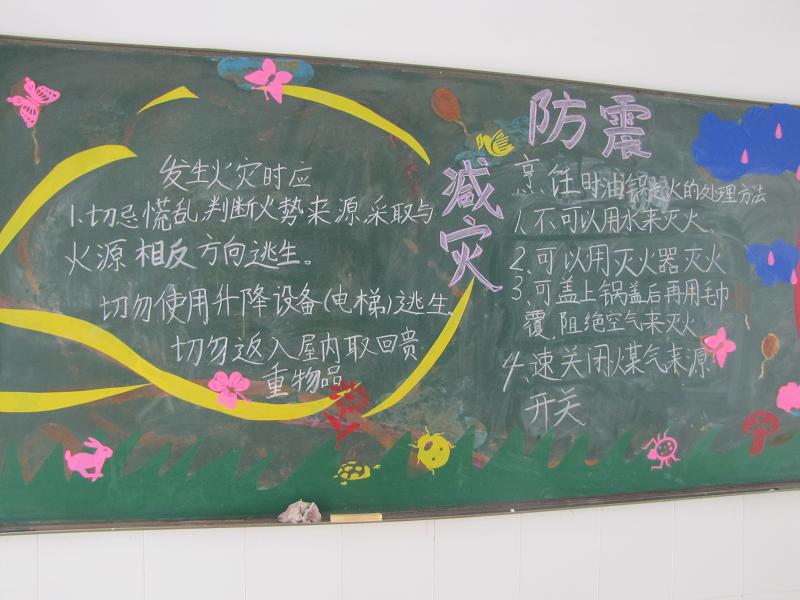 发生火灾时应
1.切忌慌乱,判断火势来源,采取与
火源相反方向逃生。
切勿使用升降设备(电梯)逃生。
切勿返入屋内取回贵
重物品
防震
减灾
烹饪时油锅起火的处理方法
1.不可以用水来灭火。
2.可以用灭火器灭火
3.可盖上锅盖后再用毛巾
覆,阻绝空气来灭火
4.速关闭煤气来源
开关